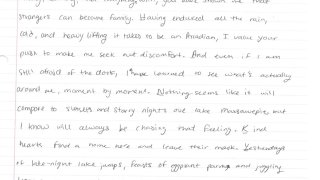 strangers can become family. Having endured all the rain,
cold, and heavy lifting it takes to be an Arcadian, I value your
push to make me seek out discomfort. And even if I am
still afraid of the dark, I have learned to see what's actually
around me, moment by moment. Nothing seems like it will
compare to silences and starry nights out lake but
I know will always be chasing that feeling. Kind
hearts find a home here and leave their mark. Yesterdays
of late-night lake jumps, feasts of eggplant parm, and juggling